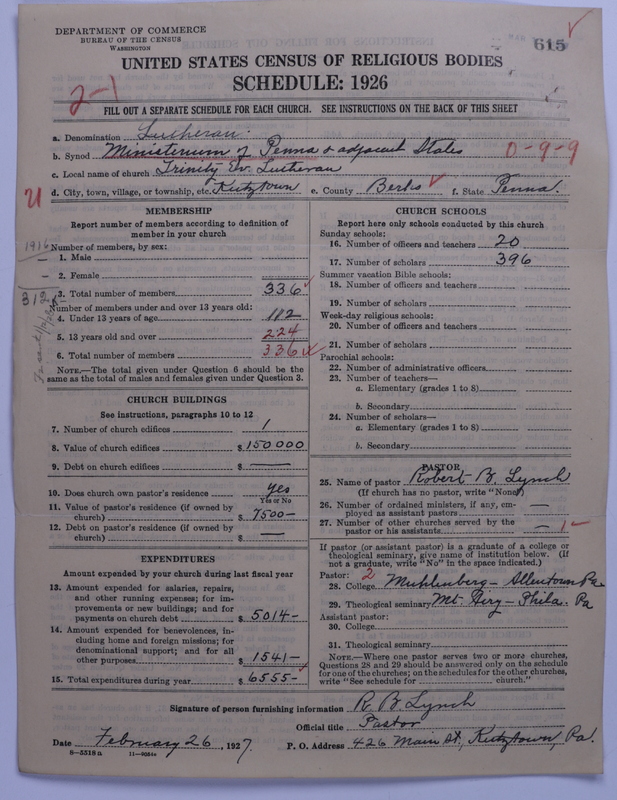 DEPARTMENT OF COMMERCE
BUREAU OF THE CENSUS
WASHINGTON
615
UNITED STATES CENSUS OF RELIGIOUS BODIES
SCHEDULE: 1926
2-1
FILL OUT A SEPARATE SCHEDULE FOR EACH CHURCH. SEE INSTRUCTIONS ON THE BACK OF THIS SHEET
a. Denomination Lutheran.
b. Synod Ministerium of Penna & adjacent States 0-9-9
c. Local name of church Trinity Ev. Lutheran
d. City, town, village, or township, etc. Kutztown e. County Berks f. State Penna.
MEMBERSHIP
Report number of members according to definition of
member in your church
1916
Number of members, by sex:
1. Male
2. Female
312
3. Total number of members 336
Number of members under and over 13 years old:
4. Under 13 years of age 112
5. 13 years old and over 224
6. Total number of members 336
NOTE.—The total given under Question 6 should be the
same as the total of males and females given under Question 3.
CHURCH BUILDINGS
See instructions, paragraphs 10 to 12
7. Number of church edifices 1
8. Value of church edifices $ 150000
9. Debt on church edifices $ —
10. Does church own pastor's residence yes
Yes or No
11. Value of pastor's residence (if owned by
church) $ 7500—
12. Debt on pastor's residence (if owned by
church) $ —
EXPENDITURES
Amount expended by your church during last fiscal year
13. Amount expended for salaries, repairs,
and other running expenses; for im-
provements or new buildings; and for
payments on church debt $ 5014—
14. Amount expended for benevolences, in-
cluding home and foreign missions; for
denominational support; and for all
other purposes $ 1541—
15. Total expenditures during year $ 6555—
CHURCH SCHOOLS
Report here only schools conducted by this church
Sunday schools:
16. Number of officers and teachers 20
17. Number of scholars 396
Summer vacation Bible schools:
18. Number of officers and teachers
19. Number of scholars
Week-day religious schools:
20. Number of officers and teachers
21. Number of scholars
Parochial schools:
22. Number of administrative officers
23. Number of teachers—
a. Elementary (grades 1 to 8)
b. Secondary
24. Number of scholars—
a. Elementary (grades 1 to 8)
b. Secondary
PASTOR
25. Name of pastor Robert B. Lynch
(If church has no pastor, write "None")
26. Number of ordained ministers, if any, em-
ployed as assistant pastors —
27. Number of other churches served by the
pastor or his assistants — 1—
If pastor (or assistant pastor) is a graduate of a college or
theological seminary, give name of institution below. (If
not a graduate, write "No" in the space indicated.)
Pastor: 2
28. College Muhlenberg – Allentown Pa.
29. Theological seminary Mt. Airy – Phila. Pa
Assistant pastor:
30. College
31. Theological seminary
NOTE.—Where one pastor serves two or more churches,
Questions 28 and 29 should be answered only on the schedule
for one of the churches; on the schedules for the other churches,
write "See schedule for church."
Signature of person furnishing information R B Lynch
Official title Pastor
Date February 26, 1927. P. O. Address 426 Main St., Kutztown, Pa.
8—5518 a